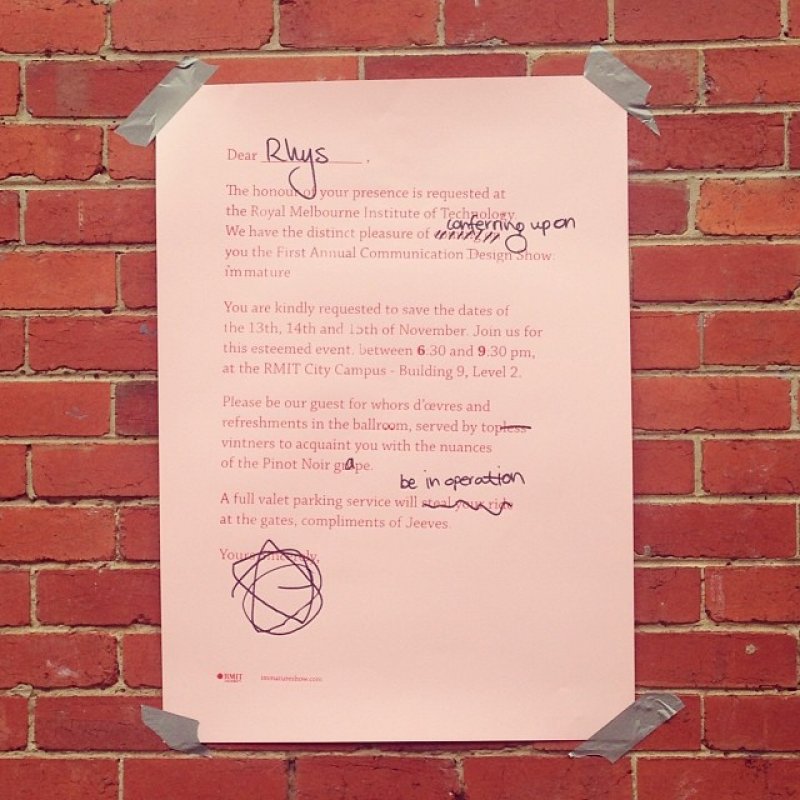 Dear Rhys,
The honour of your presence is requested at
the Royal Melbourne Institute of Technology.
We have the distinct pleasure of conferring upon
you the First Annual Communication Design Show:
i'mmature
You are kindly requested to save the dates of
the 13th, 14th and 15th of November. Join us for
this esteemed event, between 6.30 and 9.30 pm,
at the RMIT City Campus - Building 9, Level 2.
Please be our guest for whors d'œvres and
refreshments in the ballroom, served by topless
vintners to acquaint you with the nuances
of the Pinot Noir grape.
be in operation
A full valet parking service will steal your ride
at the gates, compliments of Jeeves.
Yours sincerely,
RMIT
immatureshow.com